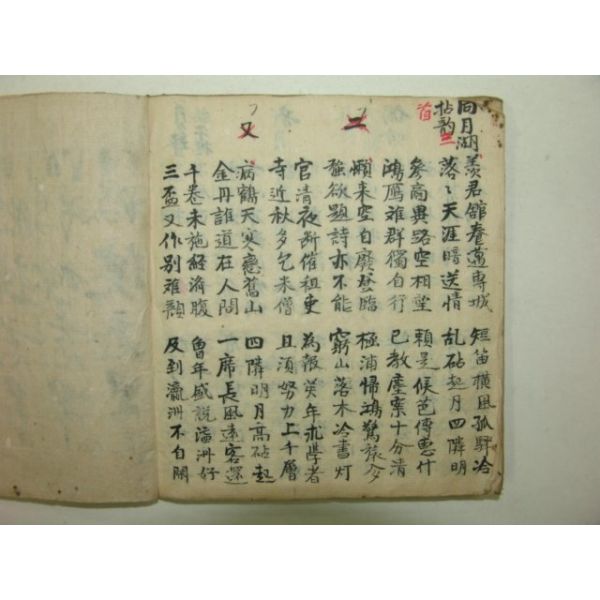 同月湖
拈韵二
首
羨君館養蓮專城 短笛橫風孤驛冷
落〻天涯曙送情 乱砧起月四隣明
參商異路空相望 賴是侯芭傳惠什
鴻雁離群獨自行 已教塵案十分清
二
願来空自廢登臨 極浦帰鴻驚旅夢
强欲題詩亦不能 窮山落木冷書灯
官清夜断催租吏 為報癸年求學者
寺近秋多乞米僧 且須努力上千層
又
病鶴天寒應舊山 四隣明月高砧起
金丹誰道在人間 一席長風遠客還
千卷未施經濟腹 曾年盛説瀛洲好
三盃又作別離顏 及到瀛洲不自閑